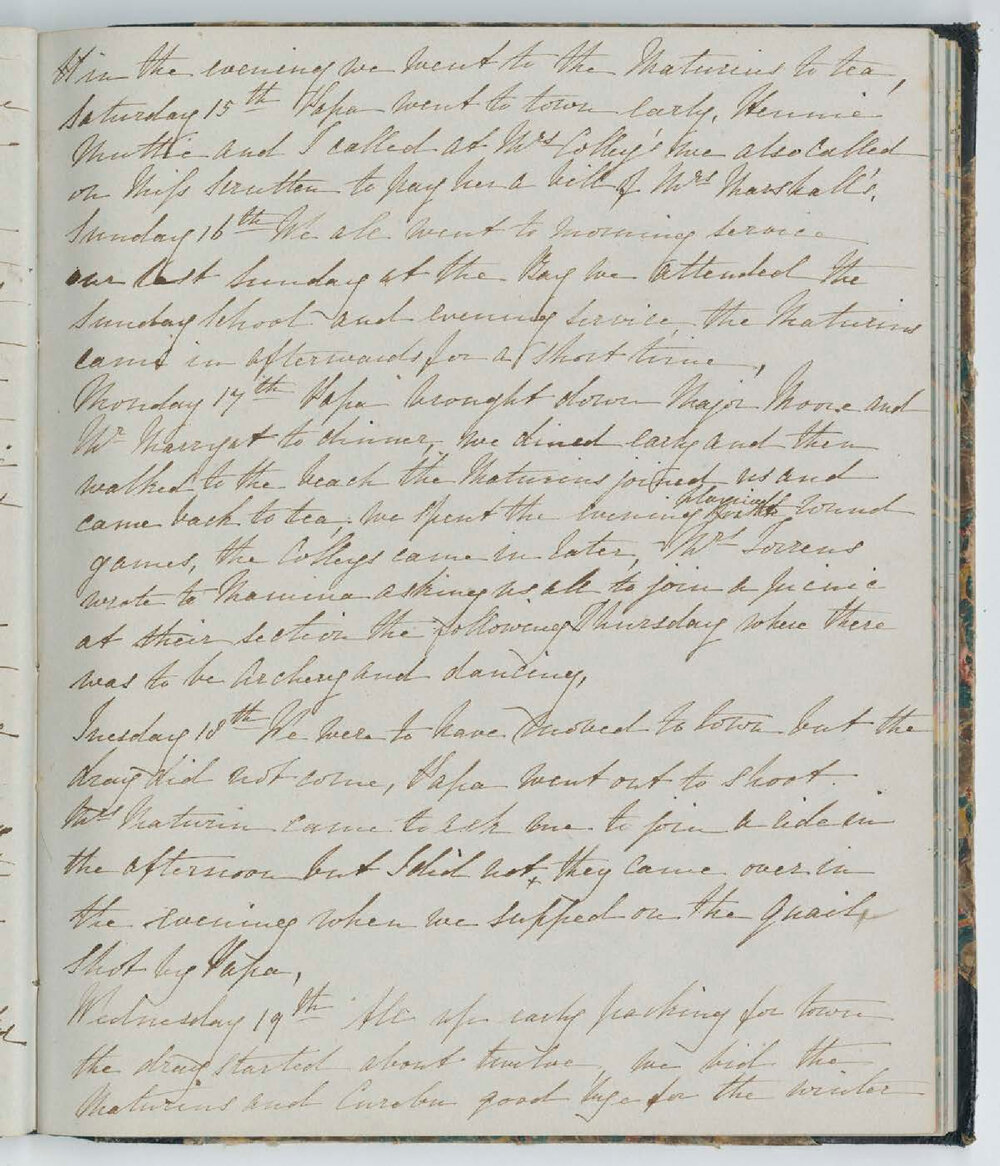 in the evening we went to the Maturins to tea,
Saturday 15th Papa went to town early, Hennie
Muttie and I called at Mrs Colley's we also called
on Miss Scrutten to pay her a bill of Mrs Marshall's.
Sunday 16th We all went to morning service
our last Sunday at the Bay we attended the
Sunday School and evening service, the Maturins
came in afterwards for a short time,
Monday 17th Papa brought down Major Moore and
Mr Marryat to dinner, we dined early and then
walked to the beach the Maturins joined us and
came back to tea, we spent the evening playing round
games, the Colleys came in later, Mrs Torrens
wrote to Mamma asking us all to join a picnic
at their section the following Thursday where there
was to be archery and dancing,
Tuesday 18th We were to have moved to town but the
dray did not come, Papa went out to shoot.
Mrs Maturin came to ask me to join a ride in
the afternoon but I did not, they came over in
the evening when we supped on the quail,
shot by Papa,
Wednesday 19th All up early packing for town
the dray started about twelve, we bid the
Maturins and good bye for the winter